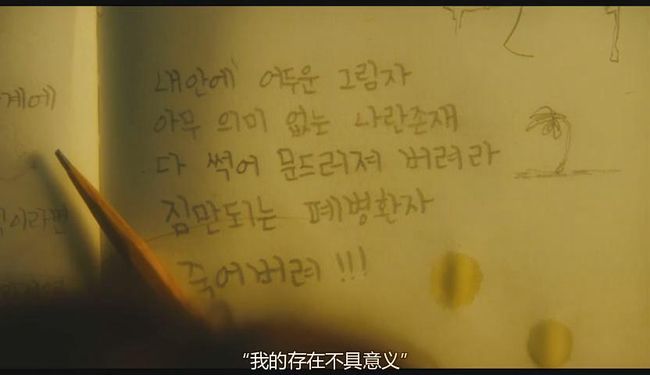 계에
내안에 어두운 그림자
아무 의미 없는 나란존재
다 썩어 문드러져 버려라
이라면
짐만되는 폐병환자
죽어버려 !!!
“我的存在不具意义”